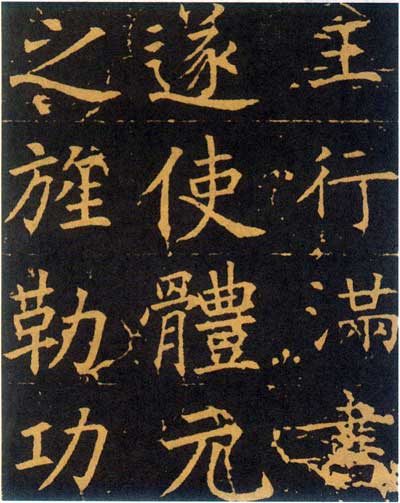 主行滿
遂使體元
之旌勒功